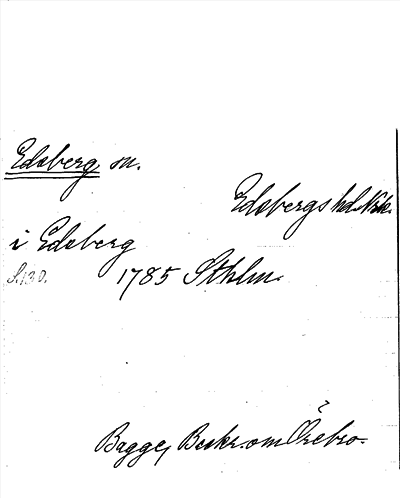 Edsberg sn.
Edsbergs hd. Nke.
i Edsberg
S. 130. 1785 Sthlm.
Bagge, Beskr. om Örebro.